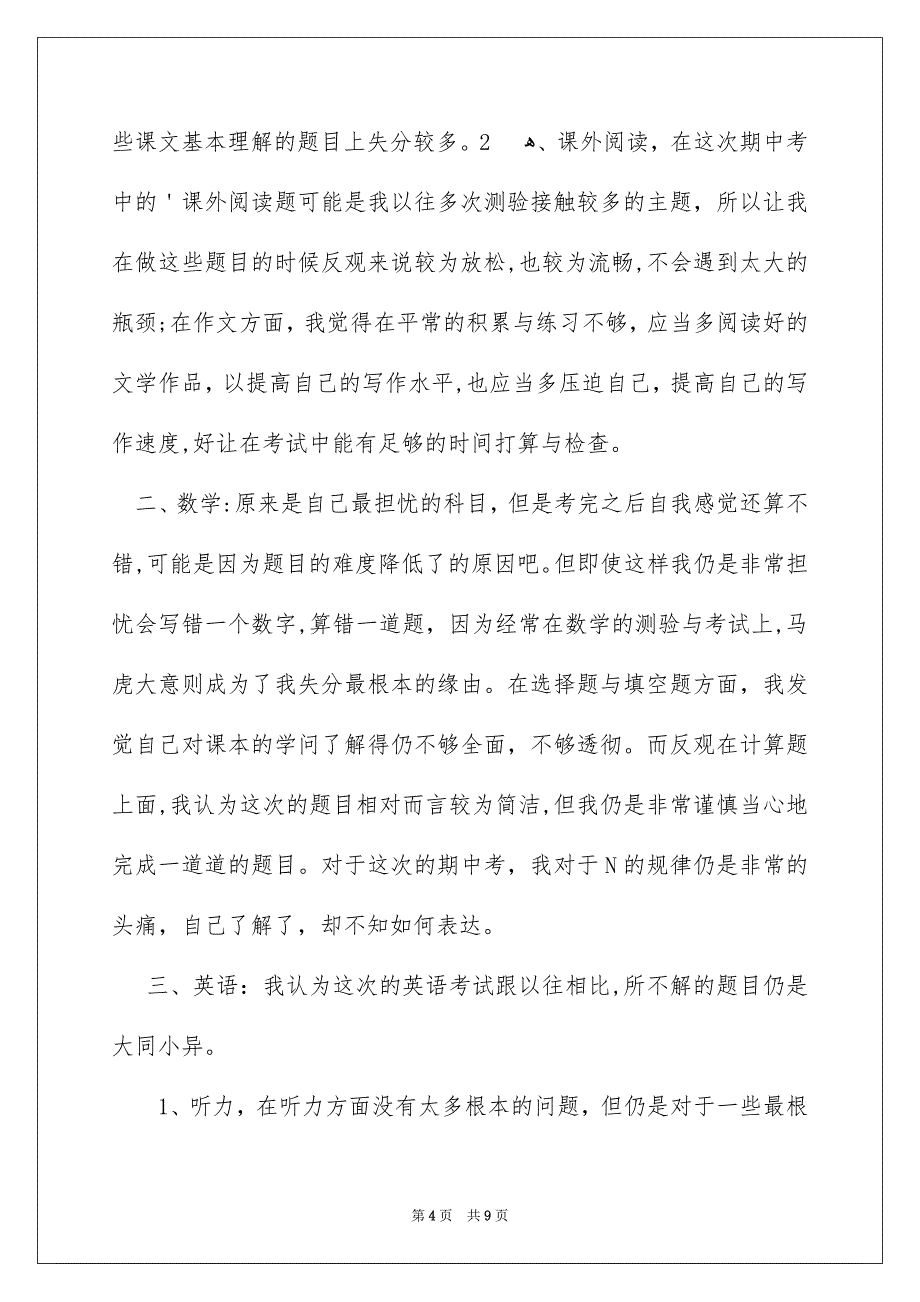 些课文基本理解的题目上失分较多。2 ﻫ、课外阅读，在这次期中考
中的＇课外阅读题可能是我以往多次测验接触较多的主题，所以让我
在做这些题目的时候反观来说较为放松,也较为流畅,不会遇到太大的
瓶颈;在作文方面，我觉得在平常的积累与练习不够，应当多阅读好的
文学作品，以提高自己的写作水平,也应当多压迫自己，提高自己的写
作速度,好让在考试中能有足够的时间打算与检查。
二、数学:原来是自己最担忧的科目，但是考完之后自我感觉还算不
错,可能是因为题目的难度降低了的原因吧。但即使这样我仍是非常担
忧会写错一个数字,算错一道题，因为经常在数学的测验与考试上,马
虎大意则成为了我失分最根本的缘由。在选择题与填空题方面，我发
觉自己对课本的学问了解得仍不够全面，不够透彻。而反观在计算题
上面,我认为这次的题目相对而言较为简洁,但我仍是非常谨慎当心地
完成一道道的题目。对于这次的期中考，我对于N的规律仍是非常的
头痛，自己了解了，却不知如何表达。
三、英语：我认为这次的英语考试跟以往相比,所不解的题目仍是
大同小异。
1、听力，在听力方面没有太多根本的问题，但仍是对于一些最根
第4页 共9页